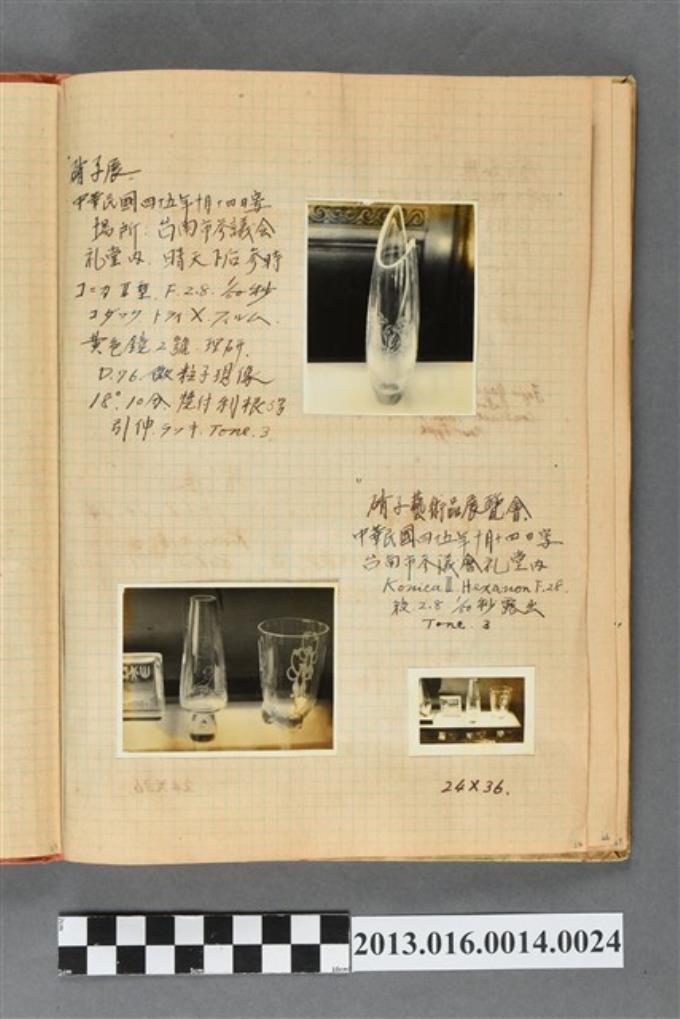 硝子展.
中華民國四十五年十月十四日寫
場所: 台南市參議会
礼堂內. 晴天下后參時
コニカⅡ型. F.2.8. 1/50秒
コダック トライX フィルム.
黃色鏡2號. 理研.
D.76. 微粒子現像
18°. 10分. 焼付利根3号
引伸. ラッキ. Tone. 3.
硝子藝術品展覽會.
中華民國四十五年十月十四日寫
台南市参議會礼堂內
Konica Ⅱ. Hexanon F.28.
絞 2.8 1/50秒露出
Tone. 3
24×36.
2013.016.0014.0024